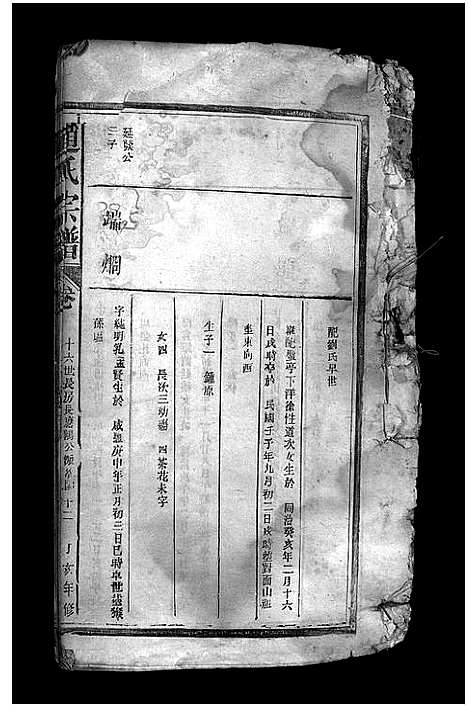 配劉氏早世
繼配壟亭下洋徐性道次女生於 同治癸亥年二月十六
日戌時卒於 民國壬子年九月初二日戌時塟對面山祖
坐東向西
生子一 鍾源
女四 長次三幼殤 四茶花未字
廷猷公
二子
端炯
字 明乳 賢生於 咸豐庚申年正月初三日巳時卒世塟猴
孫
趙氏宗譜
卷
十六世長房長 公 十二
丁亥年修